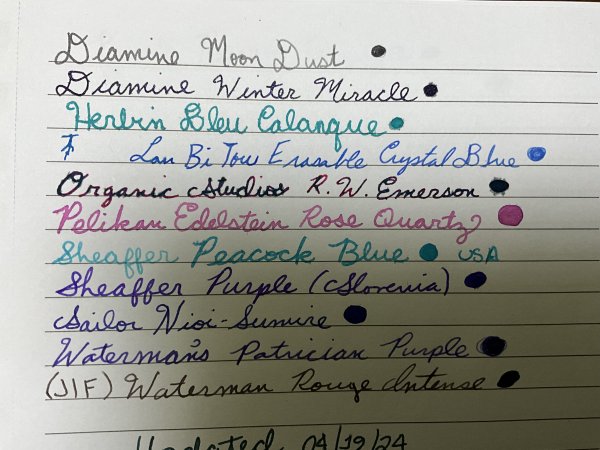 Diamine Moon Dust
Diamine Winter Miracle
Herbin Bleu Calanque
Lan Bi Tou Erasable Crystal Blue
Organic Studios R. W. Emerson
Pelikan Edelstein Rose Quartz
Sheaffer Peacock Blue USA
Sheaffer Purple (Slovenia)
Sailor Nioi-Sumire
Waterman's Patrician Purple
(JIF) Waterman Rouge Intense
Updated 04/19/24